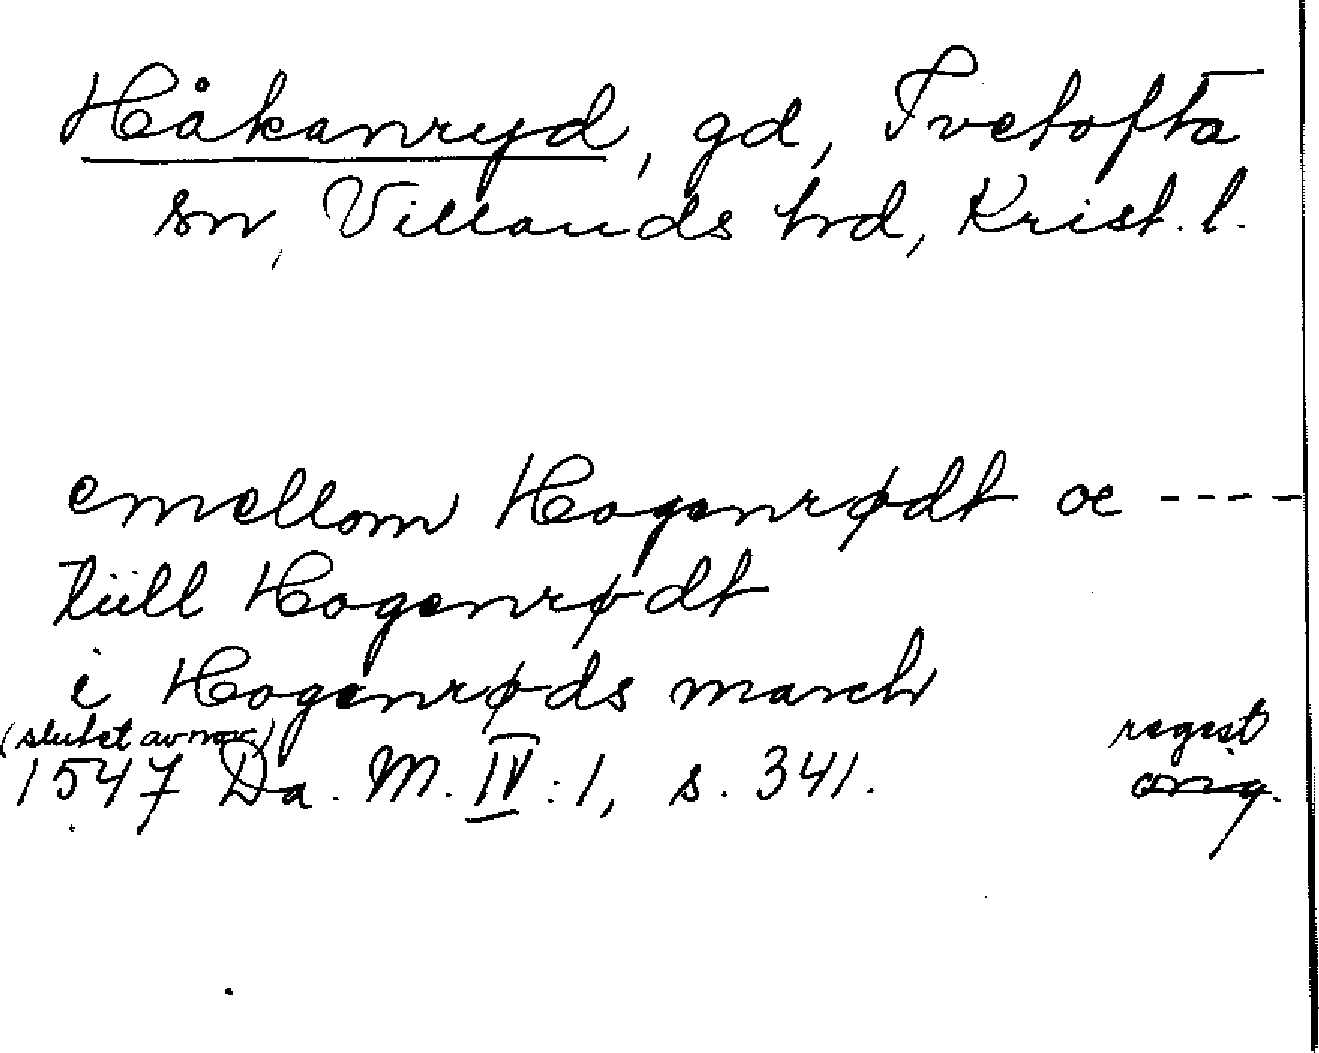 Håkanryd, gd, Ivetofta
sn, Villands hrd, Krist. l.
emellom Hogenrødt oc ----
tiill Hogenrødt
i Hogenrøds march
(slutet av nov) regist
1547 Da. M. IV:1, s. 341. orig.